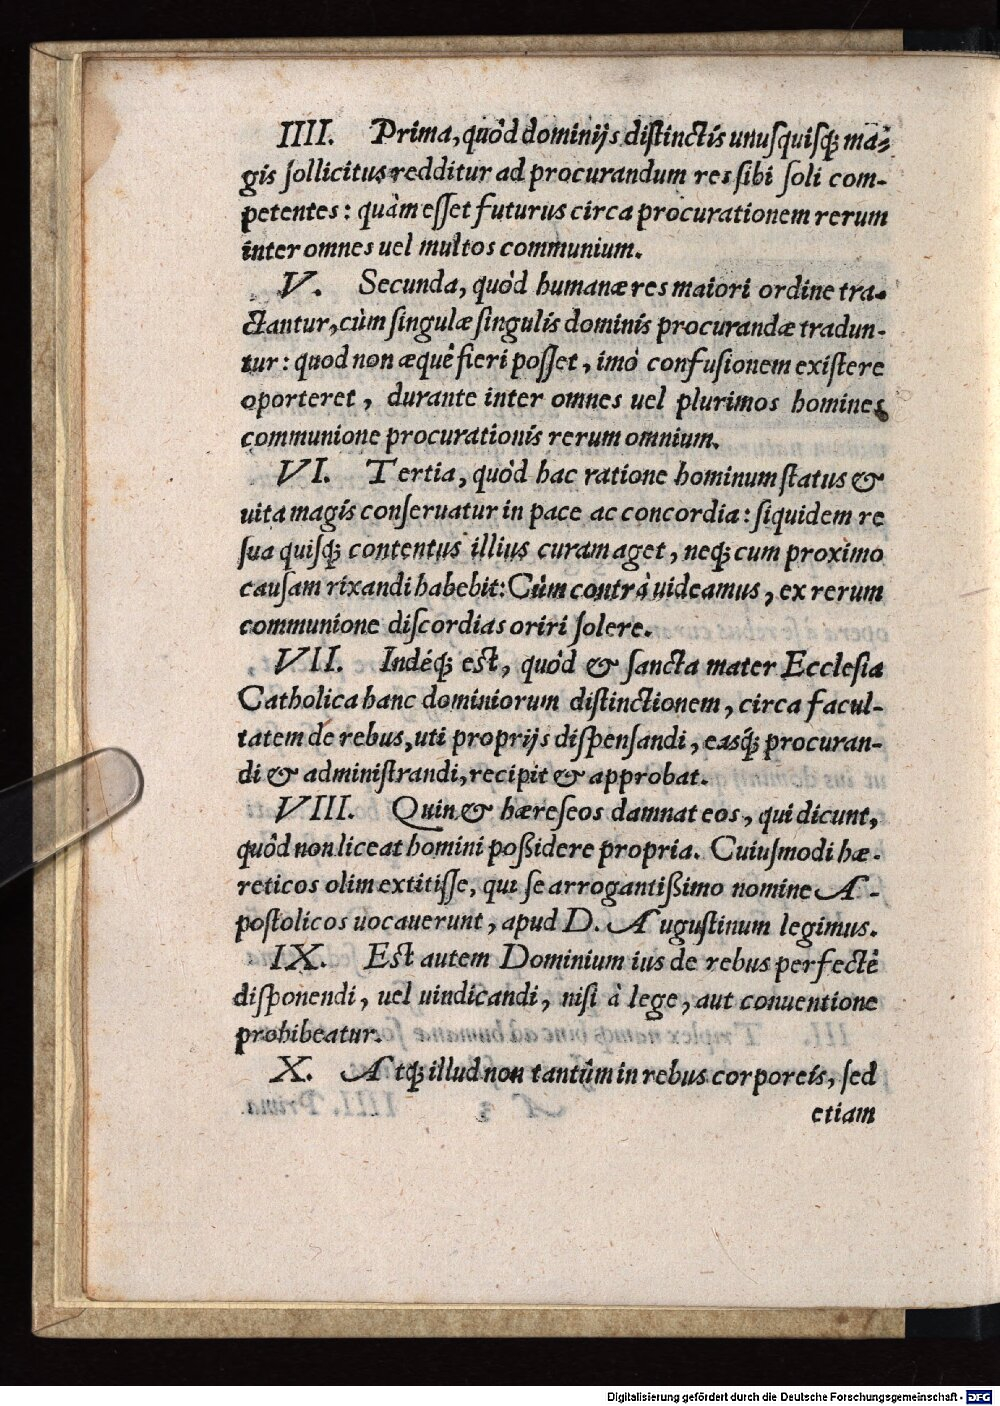 IIII. Prima, quòd dominijs diſtinctis unuſquiſq; ma-
gis ſollicitus redditur ad procurandum res ſibi ſoli com-
petentes: quàm eſſet futurus circa procurationem rerum
inter omnes uel multos communium.
V. Secunda, quòd humanæ res maiori ordine tra-
ctantur, cùm ſingulæ ſingulis dominis procurandæ tradun-
tur: quod non æquè fieri poſſet, imò confuſionem exiſtere
oporteret, durante inter omnes uel plurimos homines
communione procurationis rerum omnium.
VI. Tertia, quòd hac ratione hominum ſtatus &
uita magis conſeruatur in pace ac concordia: ſiquidem re
ſua quiſq; contentus illius curam aget, neq; cum proximo
cauſam rixandi habebit: Cùm contrà uideamus, ex rerum
communione diſcordias oriri ſolere.
VII. Indéq; est, quòd & ſancta mater Eccleſia
Catholica hanc dominiorum diſtinctionem, circa facul-
tatem de rebus, uti proprijs diſpenſandi, eaſq́; procuran-
di & adminiſtrandi, recipit & approbat.
VIII. Quin & hæreſeos damnat eos, qui dicunt,
quòd non liceat homini poßidere propria. Cuiuſmodi hæ-
reticos olim extitiſſe, qui ſe arrogantißimo nomine A-
poſtolicos uocauerunt, apud D. Auguſtinum legimus.
IX. Est autem Dominium ius de rebus perfectè
diſponendi, uel uindicandi, niſi à lege, aut conuentione
prohibeatur.
X. Atq; illud non tantùm in rebus corporeis, ſed
etiam
Digitalisierung gefördert durch die Deutsche Forschungsgemeinschaft - DFG